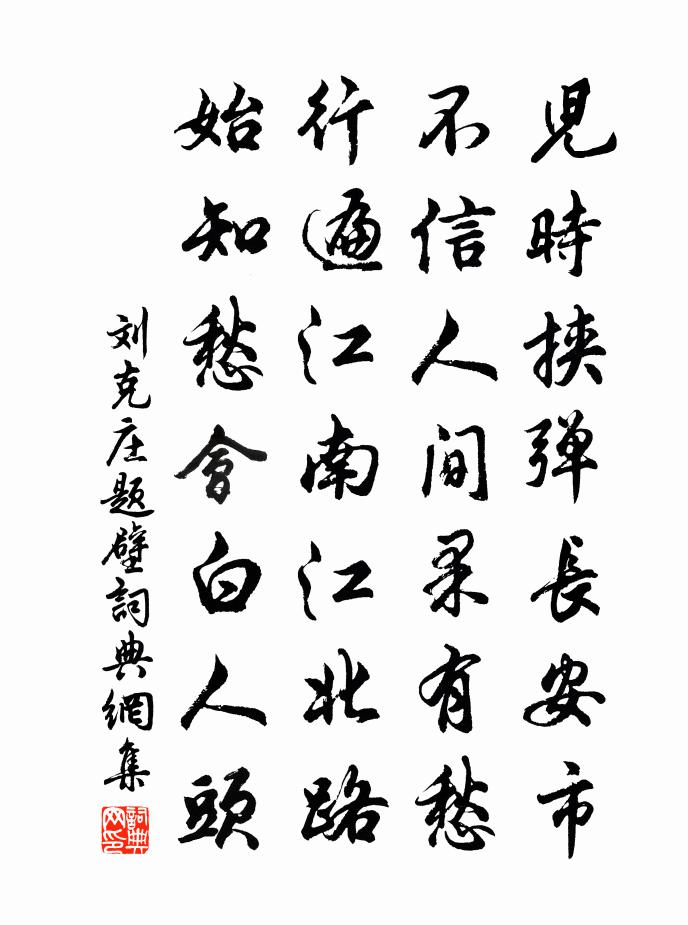 児時挟弾長安市
不信人间果有愁
行遍江南江北路
始知愁會白人頭
刘克庄题壁詞典網集
詞典网印